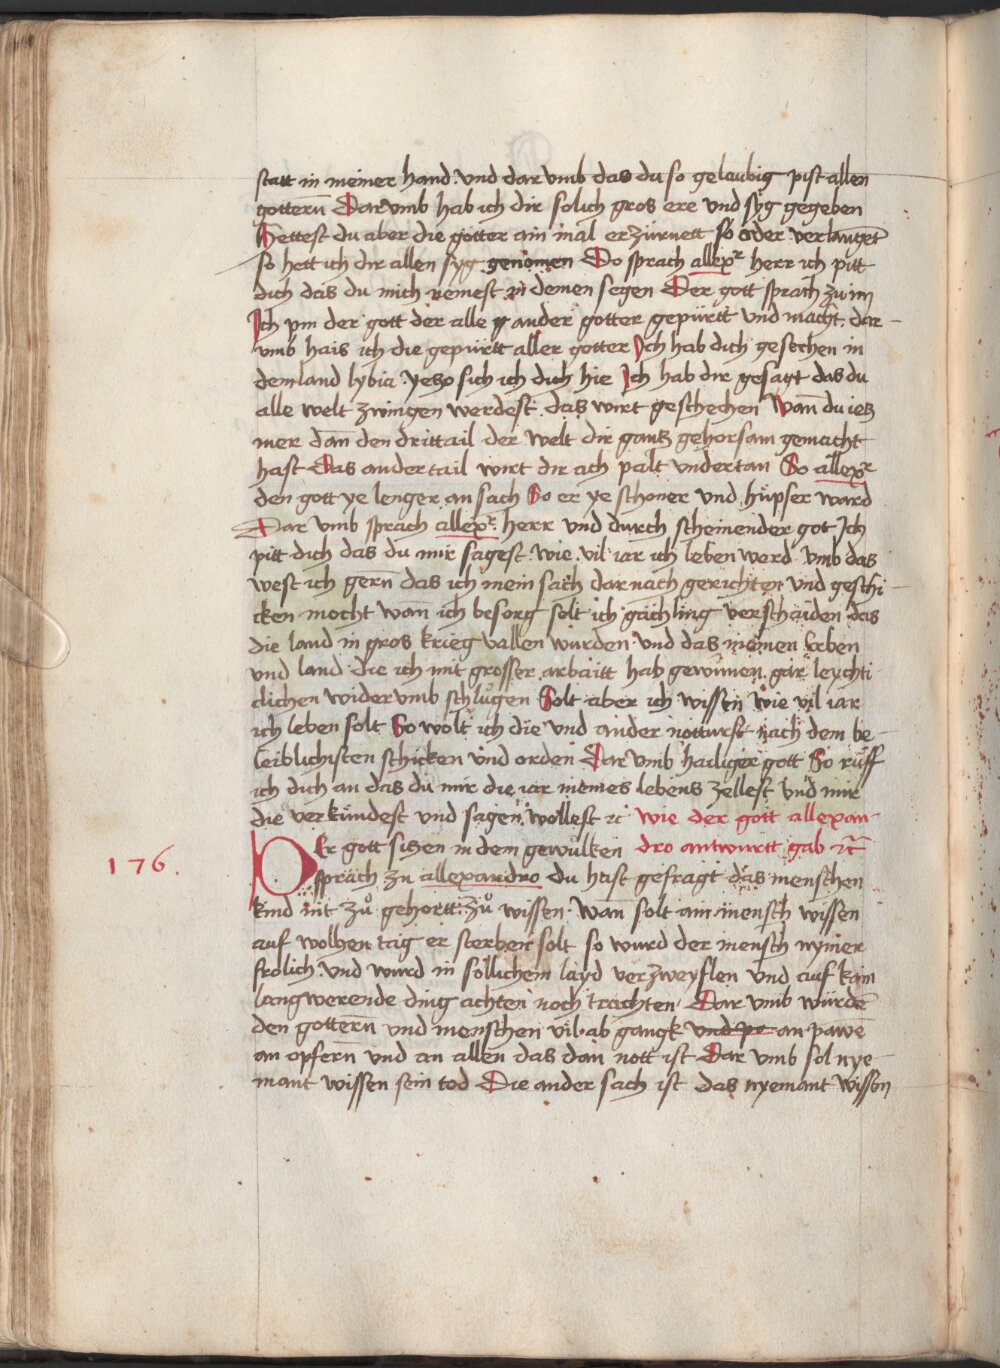 statt in meiner hand. vnd dar vmb das du so gelaubig pist allen
gottern̄ Dar vmb hab ich dir solich gros ere vnd syg gegeben
Hettest du aber die gotter ain mal erzürnett so oder verlauget
so hett ich dir allen syg genomen Do sprach allexr herr ich pitt
dich das du mich nemest in deinen segen Der gott sprach zu im
Ich pin der gott der alle ander götter gepürtt vnd macht. dar-
vmb hais ich die gepürtt aller gotter Ich hab dich gesechen in
dem land lybia yeso sich ich dich hie Ich hab dir gesagt das du
alle welt zwingen werdest. das wirt geschechen Wan̄ du iez
mer dan̄ den drittail der welt dir gantz gehorsam gemacht
hast Das ander tail wirt dir ach palt vndertan So allexr
den gott ye lenger an sach So er ye schoner vnd hüpser ward
Dar vmb sprach allexr. herr vnd durch scheinender got Ich
pitt dich das du mir sagest wie vil iar ich leben werd vmb das
west ich gern̄ das ich mein sach darnach gerichten vnd geschi-
cken mocht wan̄ ich besorg solt ich gächling verschaiden das
die land in gros krieg vallen wurden. vnd das meinen erben
vnd land die ich mit grosser arbaitt hab gewunen. gar leychti
clichen widervmb schlügen Solt aber ich wissen wie vil iar
ich leben solt So wolt ich die vnd ander notturft nach dem be-
leiblichisten schicken vnd orden Dar vmb hailiger gott So rüff
ich dich an das du mir die iar meines lebens zellest vnd mir
die verkündest vnd sagen wollest ꝛc wie der gott allexan-
DEr gott sizen in dem gewülken dro antwurtt gab ꝛc
176.
sprach zu allexandro du hast gefragt das menschen
kind nit zů gehortt. zů wissen. wan̄ solt ain mensch wissen
auf wolhen tag er sterben solt so wurd der mensch nymer
frolich. vnd wurd in sollichem layd verzweyflen vnd auf kain
langwerende ding achten noch trachten. Dar vmb würdē
den gottern̄ vnd menschen vil ab gangk vnd pa an pawē
an opfern̄ vnd an allen das dan̄ nott ist Dar vmb sol nye-
mant wissen sein tod Die ander sach ist das nyemant wissen